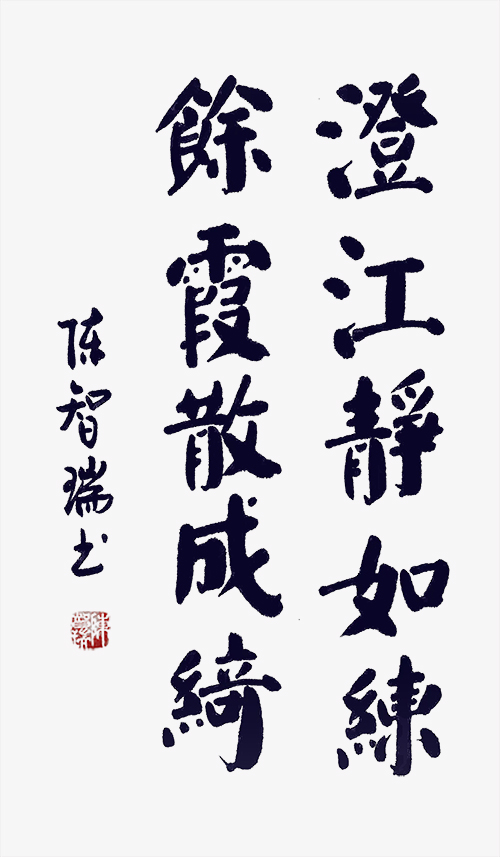 澄江靜如練
餘霞散成綺
陈智瑞书